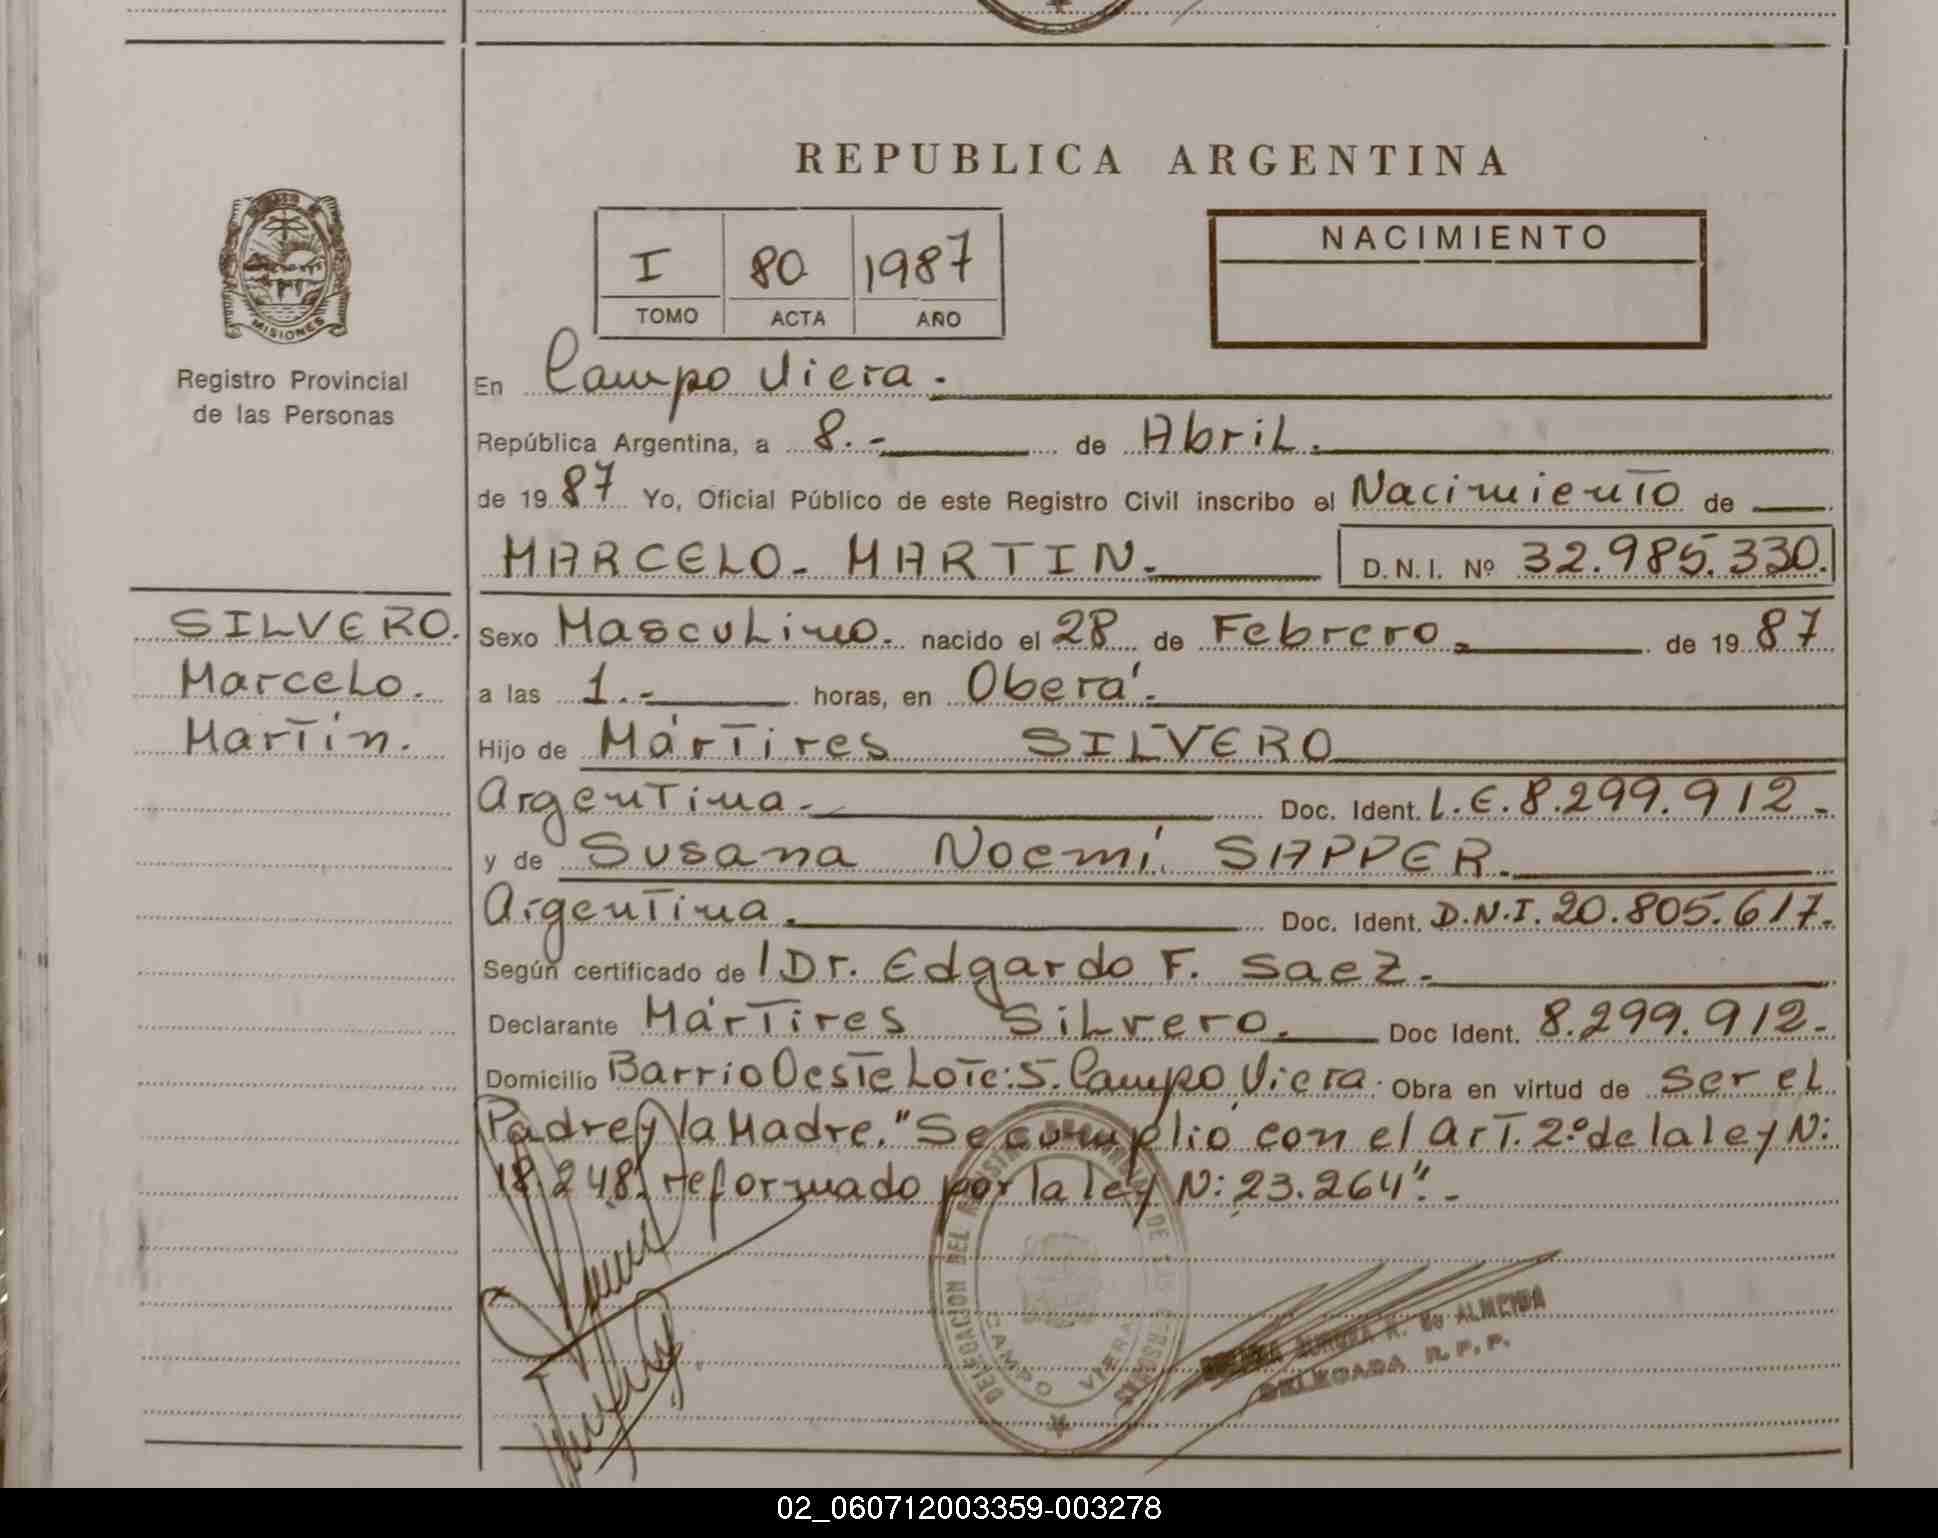 REPUBLICA ARGENTINA
I 80 1987
TOMO ACTA AÑO
NACIMIENTO
MISIONES
Registro Provincial
de las Personas
En Campo Viera.
República Argentina, a 8.- de Abril.
de 1987 Yo, Oficial Público de este Registro Civil inscribo el Nacimiento de
MARCELO. MARTIN. D.N.I. Nº 32.985.330.
SILVERO.
Marcelo.
Martín.
Sexo Masculino. nacido el 28 de Febrero. de 1987
a las 1.- horas, en Oberá.
Hijo de Mártires SILVERO
Argentina. Doc. Ident. L.E. 8.299.912.-
y de Susana Noemí SAPPER.
Argentina. Doc. Ident. D.N.I. 20.805.617.
Según certificado de / Dr. Edgardo F. Saez.
Declarante Mártires Silvero. Doc Ident. 8.299.912.-
Domicilio Barrio Oeste Lote: 5. Campo Viera. Obra en virtud de ser el
Padre y la Madre. "Se cumplió con el art. 2º de la ley N:
18.248. reformado por la ley N: 23.264".-
DELEGACION DEL REGISTRO DE LAS
CAMPO VIERA
ALMEIDA
DELEGADA R.P.P.
02_060712003359-003278